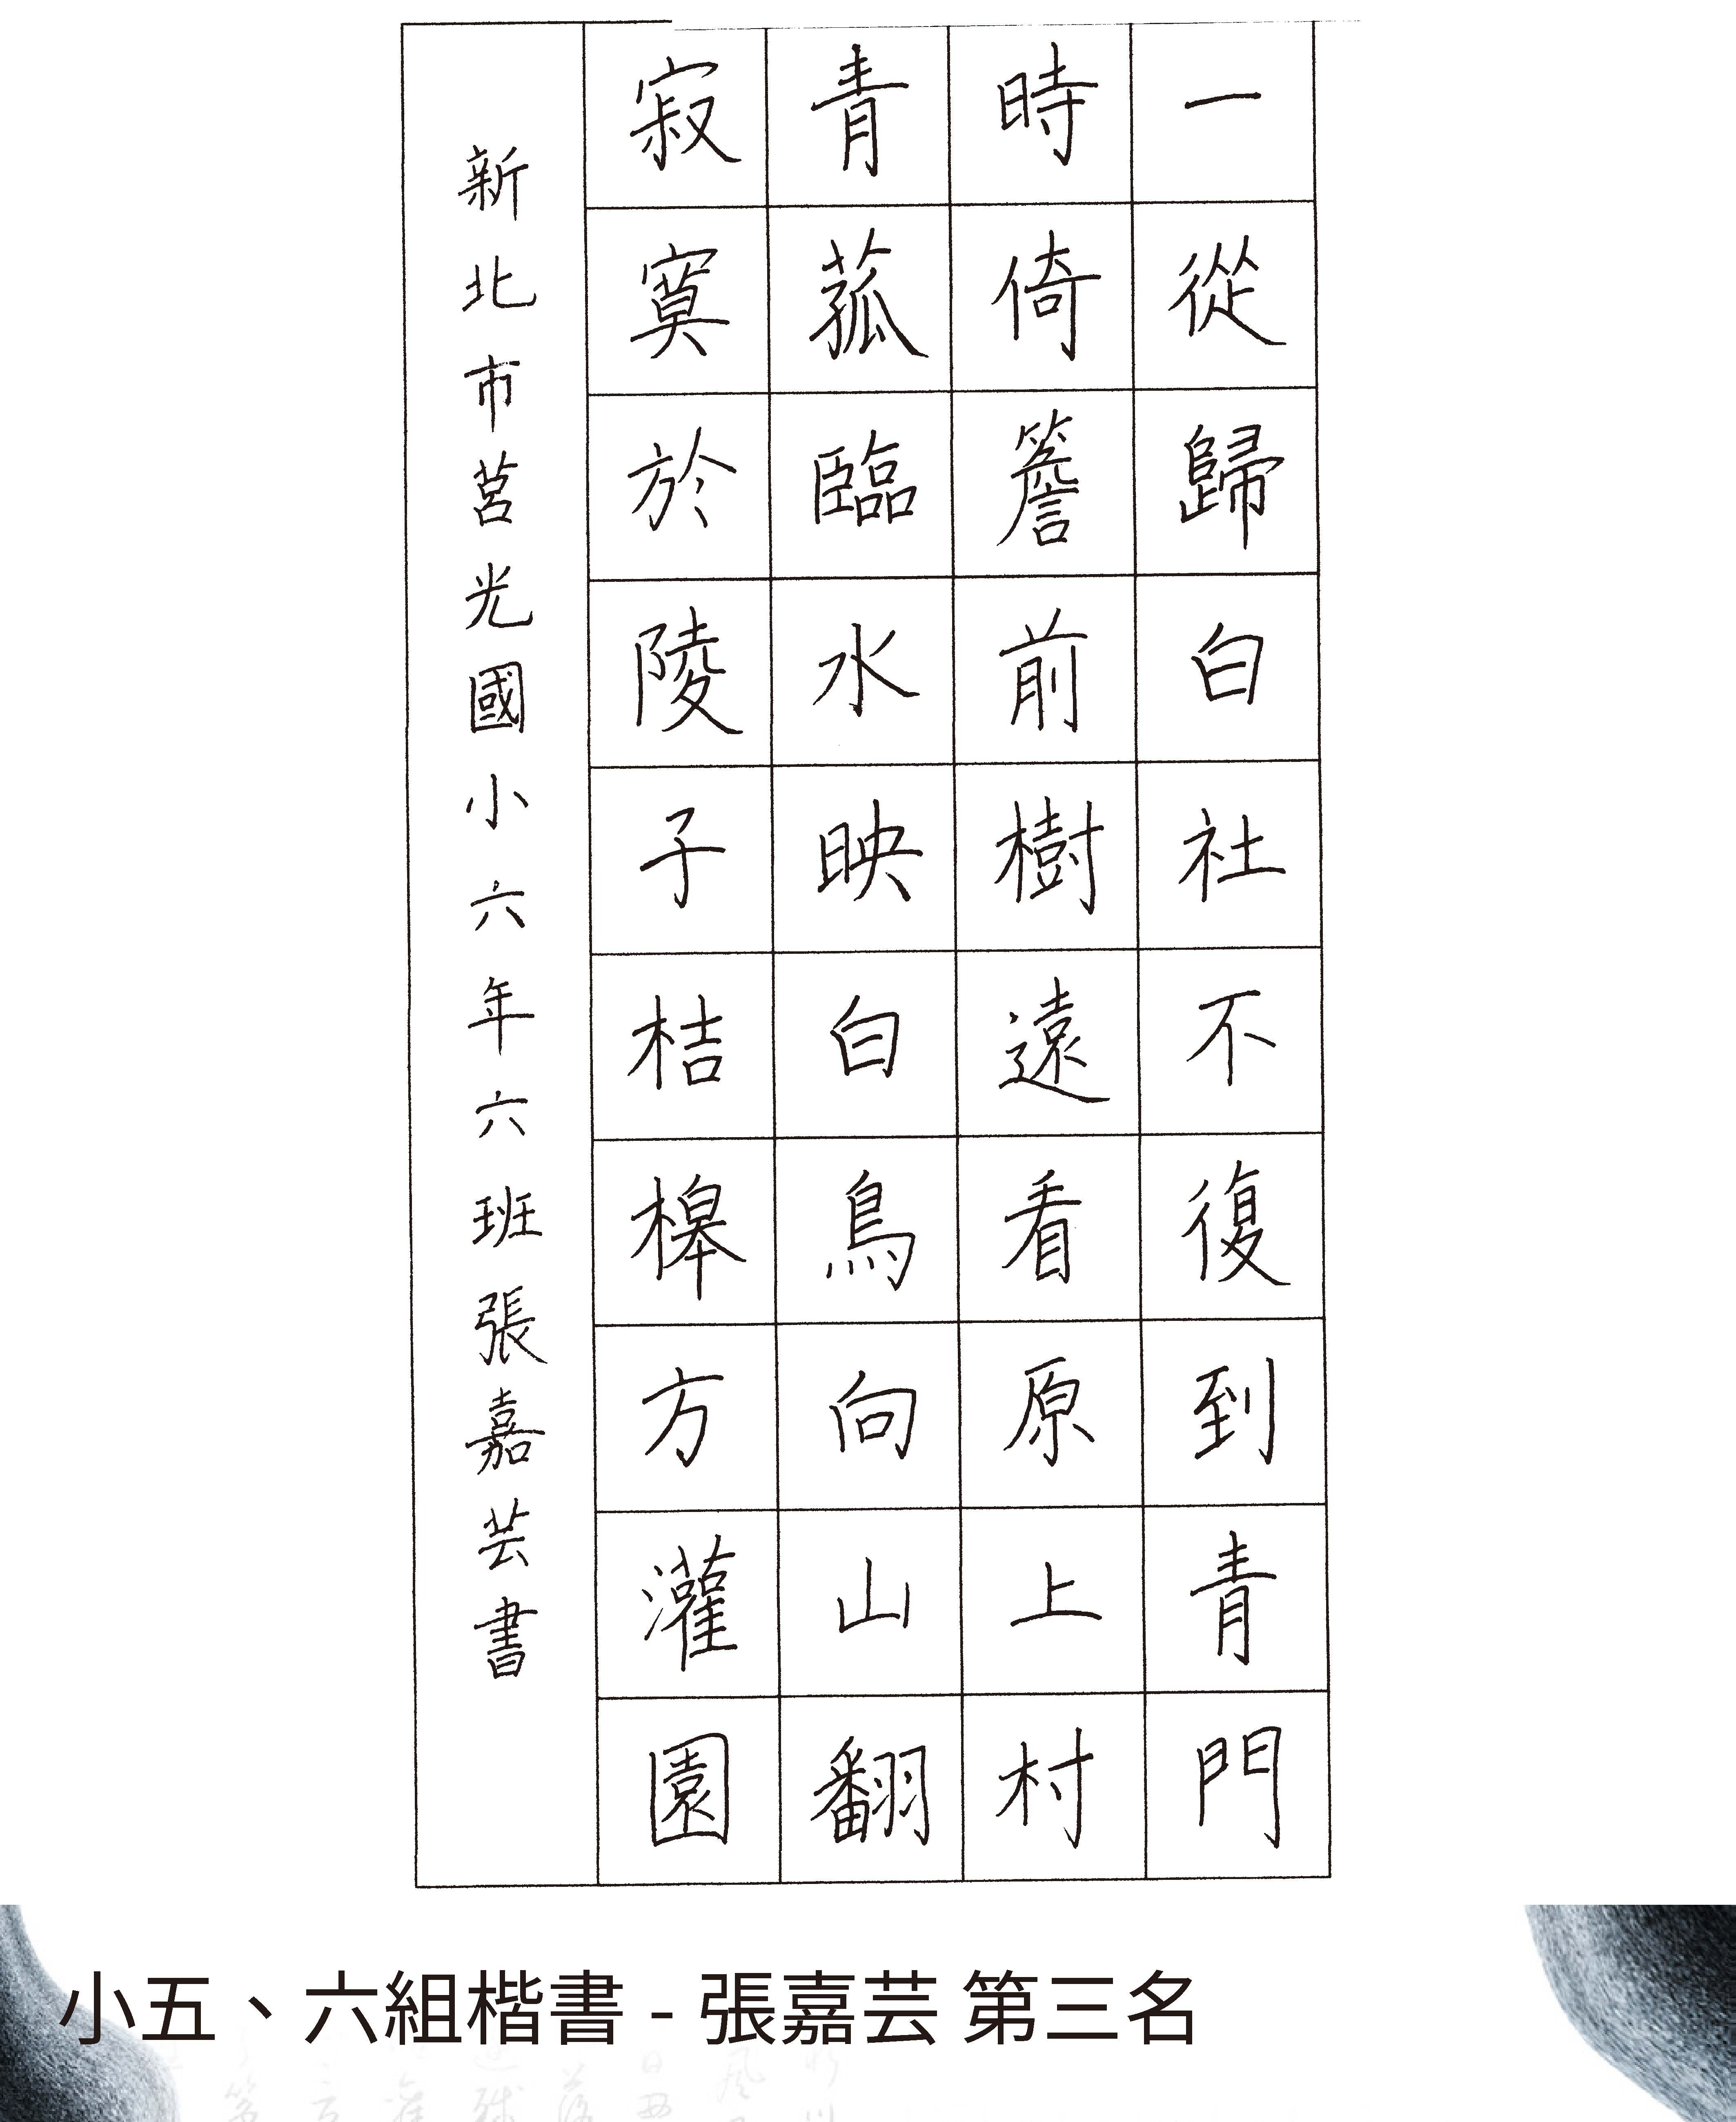 一從歸白社不復到青門
時倚簷前樹遠看原上村
青菰臨水映白鳥向山翻
寂寞於陵子桔槔方灌園
新北市莒光國小六年六班張嘉芸書
小五、六組楷書 - 張嘉芸 第三名